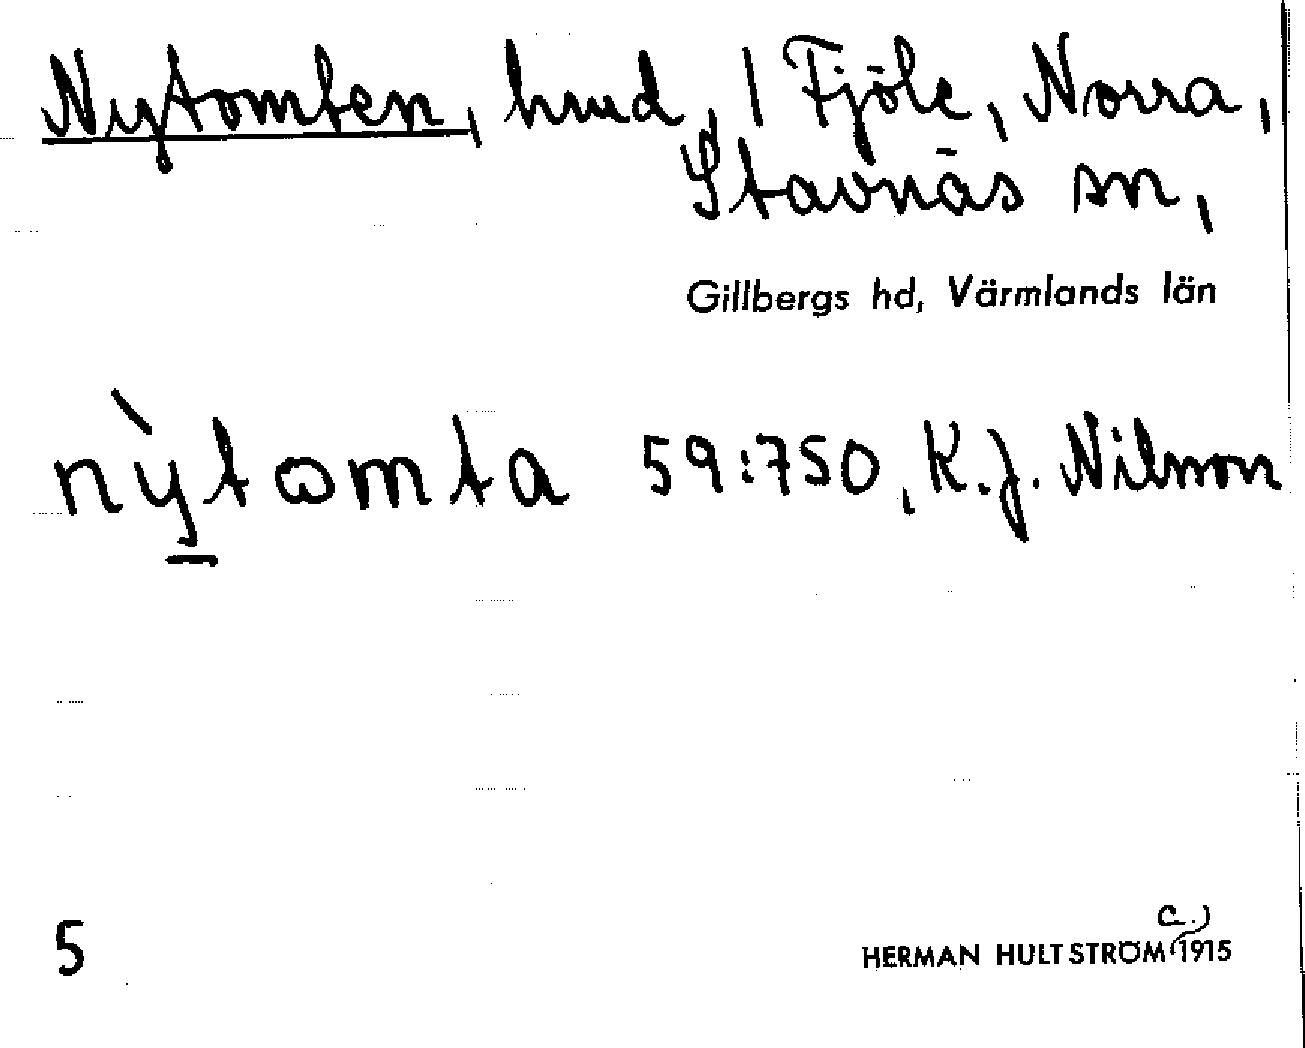 Nytomten, hmd, 1 Fjöle, Norra,
Stavnäs sn,
Gillbergs hd, Värmlands län
nỳtωmta 59:750, K.J. Nilsson
5
c.)
HERMAN HULTSTRÖM 1915